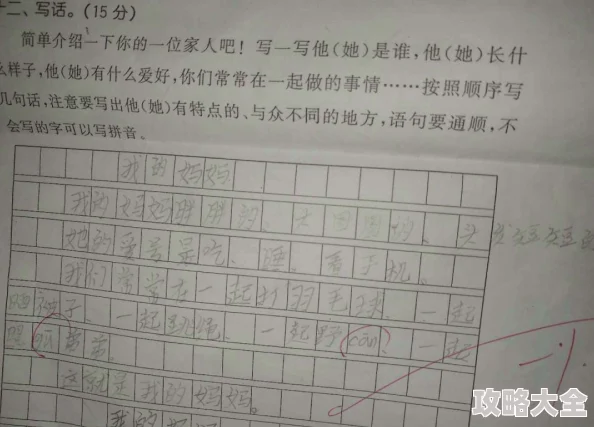 十二、写话。(15分)
简单介绍一下你的一位家人吧！写一写他(她)是谁,他(她)长什
么样子,他(她)有什么爱好,你们常常在一起做的事情……按照顺序写
几句话,注意要写出他(她)有特点的、与众不同的地方,语句要通顺,不
会写的字可以写拼音。
我的妈妈
我的妈妈胖胖的。大 的。头
她的爱号是吃、睡、看手机。
我们常堂在一起打羽毛球、一起
子、一起跳绳、一起野cān、一起
爸爸。
这就是我的妈妈。
我的妈妈
攻略大全